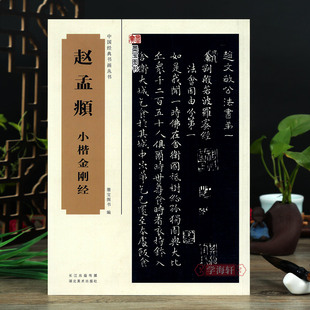 中国经典书画丛书
赵孟頫
小楷金刚经
编
长江出版传媒
湖北美术出版社
趙文敏公法書第一
金剛般若波羅蜜經
法會因由分第一
如是我聞一時佛在舍衛國祇樹給孤獨園與大比
丘衆千二百五十人俱爾時世尊食時著衣持鉢入
舍衛大城乞食於其城中次第乞已還至本處飯食
学海轩